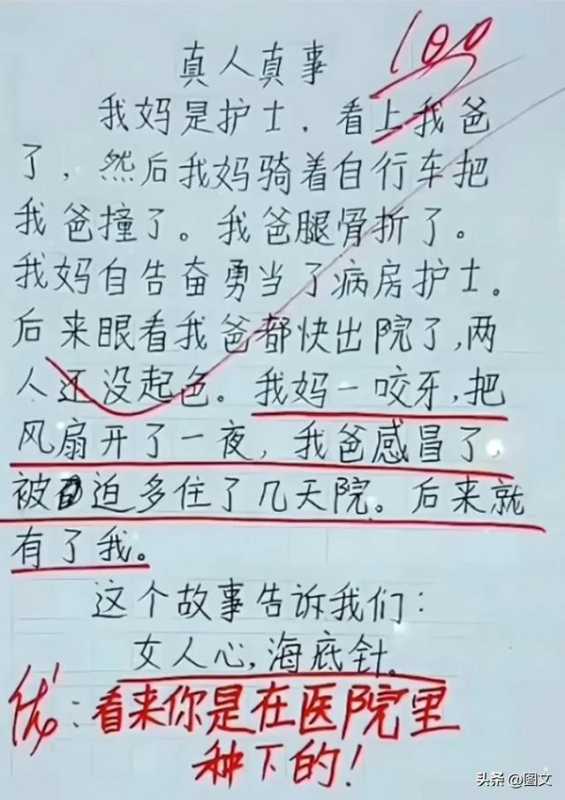 100
真人真事
我妈是护士.看上我爸
了,然后我妈骑着自行车把
我爸撞了。我爸腿骨折了。
我妈自告奋勇当了病房护士。
后来眼看我爸都快出院了,两
人还没起色。我妈一咬牙,把
风扇开了一夜,我爸感冒了,
被迫多住了几天院。后来就
有了我。
这个故事告诉我们:
女人心,海底针。
优:看来你是在医院里
种下的!
头条 @图文